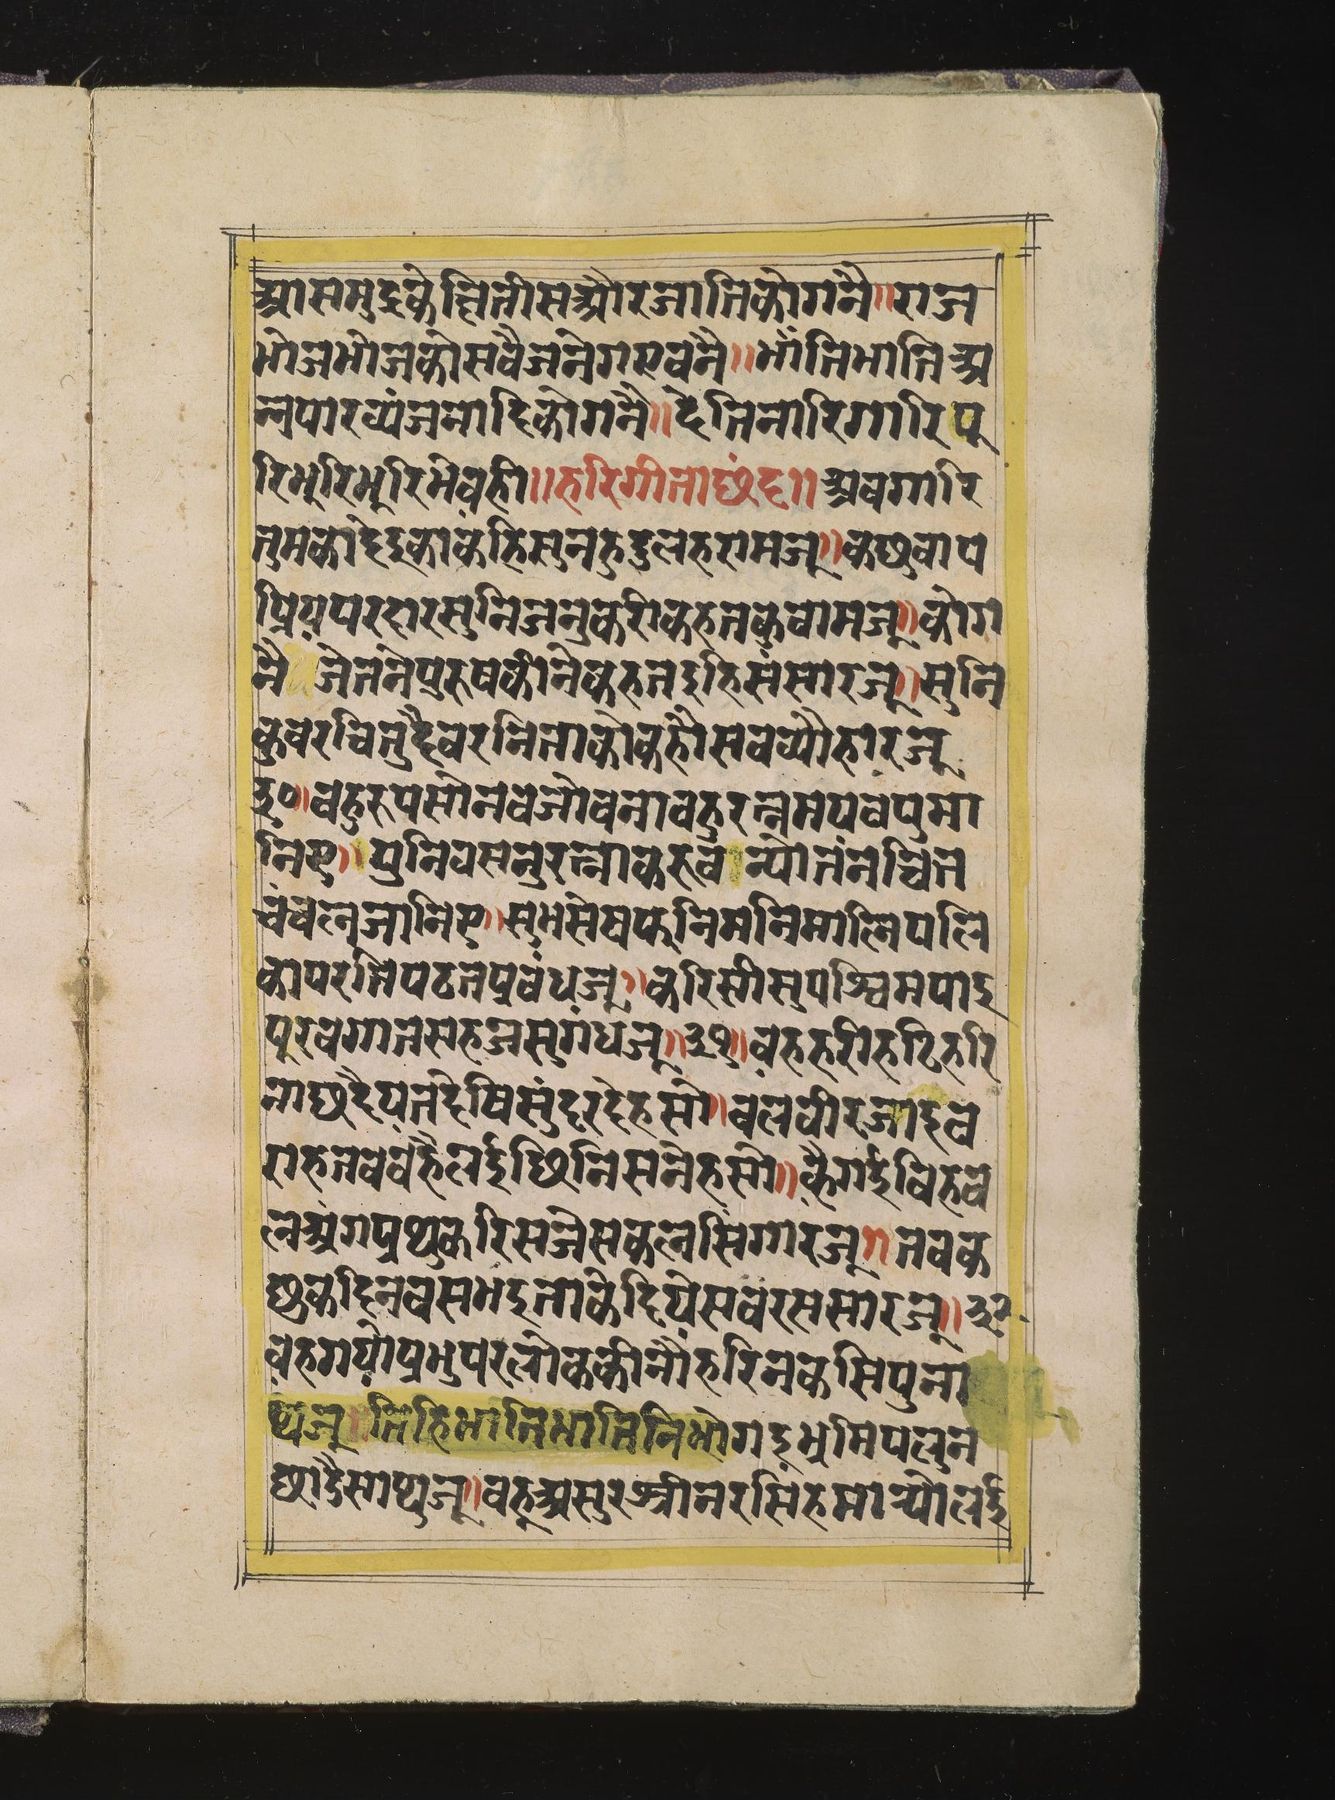 आसमुद्रकेछितीसऔरजातिकोगनै॥राज
भोजभोजकोसवैजनेगएवनै॥भाँतिभातिअ
न्नपारव्यंजनादिकोगनै॥देतिनारिगारिपू
रिभूरिभूरिभेवही॥हरिगीताछंद॥अवगारि
तुमकोदेइकाकहिसुनहुदुलहरामजू॥कछुवाप
प्रियपरदारसुनिजनुकरीकहतकुवामजू॥कोग
नै जेतनेपुरुषकीनेकहतइहिसंसारजू॥सुनि
कुवरचितुदैवरनिताकोकहौसवव्यौहारजू
३०॥वहुरुपसोनवजोवनावहुरत्नमयवपुमा
निए॥पुनिवसनुरत्नाकरुव न्योतंनचित
चंचलजानिए॥सुभसेषफुनिमनिमालिपलि
कापरतिपढतप्रवंधजू॥करिसीसुपश्चिमपाइ
पूरवगातसहजसुगंधजू॥३१॥वहहरीहठिहरि
नाछदैयतदेषिसुंदरदेहसो॥वलवीरजाइव
राहतववहैलईछिनिसनेहसो॥कैगईविहव
लअंगप्रथुकरिसजेसकलसिंगारजू॥तवक
छुकदिनवसभइताकेदियेसवरससारजू॥३२
वहगयोप्रभुपरलोककीनौंहरिनकसिपुना
थजू॥तिहिभांतिभातिनिभोगइभूमिपलुन
छाडैसाथजू॥वहअसुरश्रीनरसिंहमार्‍योलई